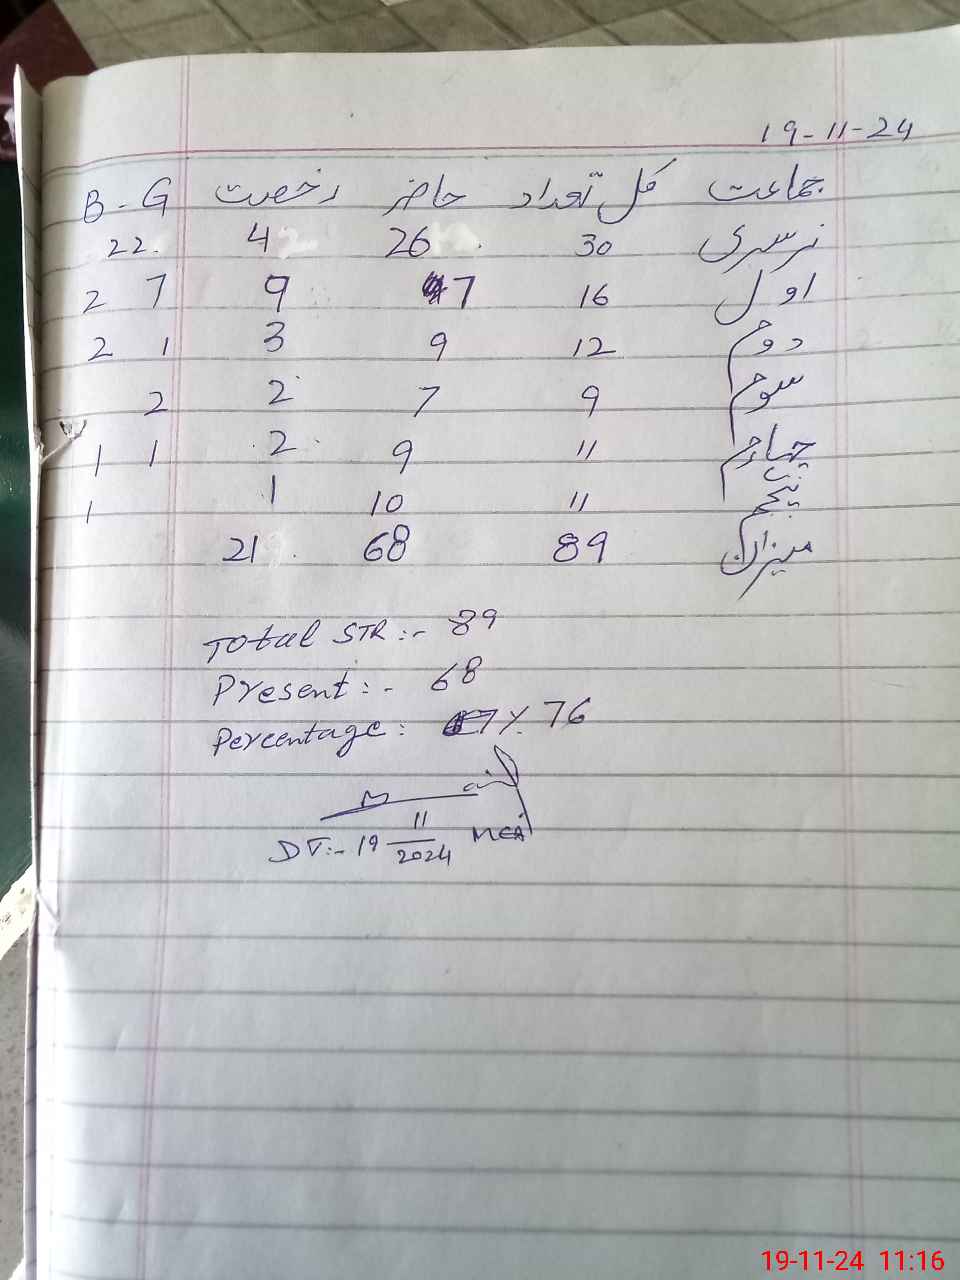 19-11-24
جماعت کل تعداد حاضر رخصت B - G
نرسری 30 26 4 22
اول 16 7 9 2 7
دوم 12 9 3 2 1
سوم 9 7 2 2
چہارم 11 9 2 1 1
پنجم 11 10 1 1
میزان 89 68 21
Total STR:- 89
Present:- 68
Percentage: 7% 76
DT:- 19 11/2024
19-11-24 11:16